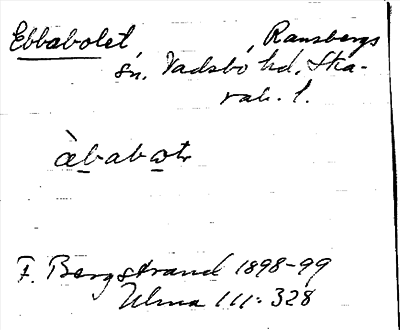 Ebbabolet, Ransbergs
sn, Vadsbo hd, Ska-
rab. l.
F. Bergstrand 1898-99
Ulma 111:328